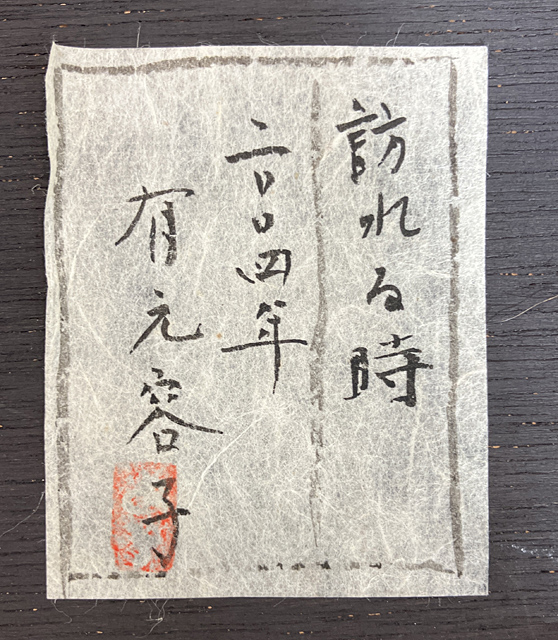 訪れる時
二〇〇四年
有元容子